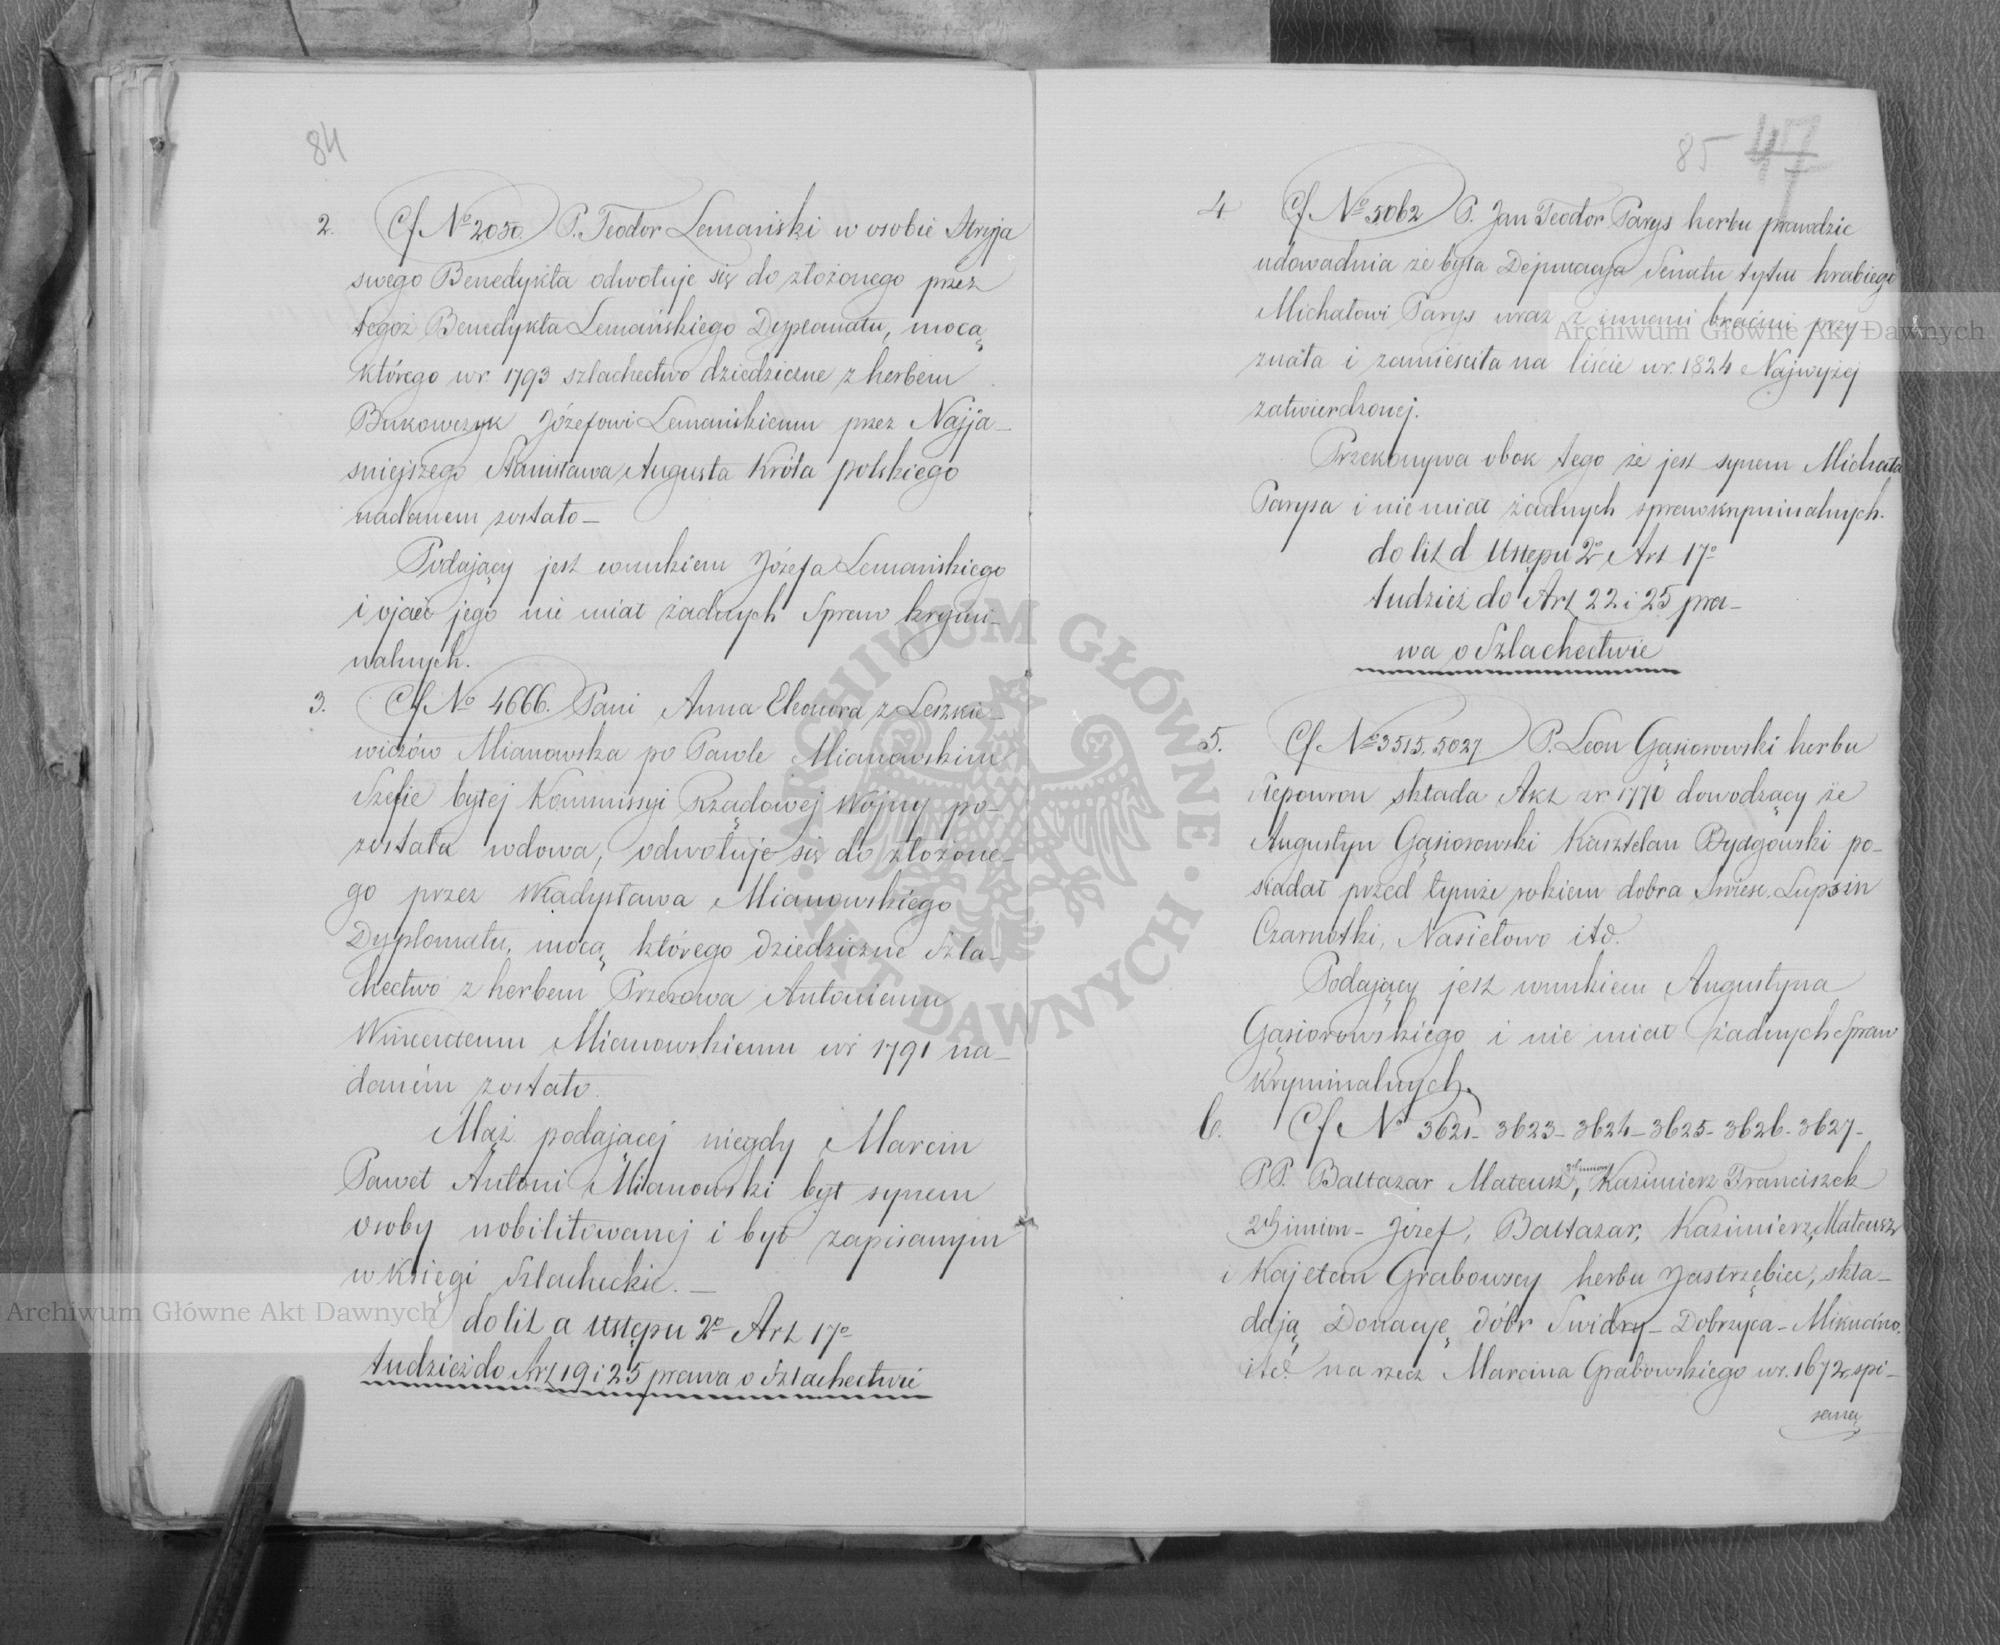 84
2. Cf No 2050. P. Teodor Lemański w osobie Stryja
swego Benedykta odwołuje się do złożonego przez
tegoż Benedykta Lemańskiego Dyplomatu, mocą
którego w r. 1793 szlachectwo dziedziczne z herbem
Bukowczyk Józefowi Lemańskiemu przez Najja-
śniejszego Stanisława Augusta Króla polskiego
nadanem zostało—
Podający jest wnukiem Józefa Lemańskiego
i ojciec jego nie miał żadnych Spraw krymi-
nalnych.
3. Cf No 4666. Pani Anna Eleonora z Leszkie-
wiczów Mianowska po Pawle Mianowskim
Szefie byłej Kommissyi Rządowej Wojny po-
została wdowa, odwołuje się do złożone-
go przez Władysława Mianowskiego
Dyplomatu, mocą którego dziedziczne Szla-
chectwo z herbem Przerowa Antoniemu
Wincentemu Mianowskiemu w r 1791 na-
daném zostało.
Mąż podającej niegdy Marcin
Paweł Antoni Mianowski był synem
osoby nobilitowanej i był zapisanym
w Księgi Szlacheckie.—
do lit a Ustępu 2o Art 17o
tudzież do Art 19 i 25 prawa o Szlachectwie
85 47
4 Cf No 5062 P. Jan Teodor Parys herbu prawdzic
udowadnia że była Deputacya Senatu tytuł hrabiego
Michałowi Parys wraz z innemi braćmi przy-
znała i zamieściła na liście w r. 1824 Najwyżej
zatwierdzonej.
Przekonywa obok tego że jest synem Michała
Parysa i nie miał żadnych spraw kryminalnych.
do lit d Ustępu 2o Art 17o
tudzież do Art 22 i 25 pra-
wa o Szlachectwie
5. Cf No 3515. 5027 P. Leon Gąsiorowski herbu
Ślepowron składa Akt z r. 1771 dowodzący że
Augustyn Gąsiorowski Kasztelan Bydgowski po-
siadał przed tymże rokiem dobra Lupsin
Czarnotki, Nasiełowo itd.
Podający jest wnukiem Augustyna
Gąsiorowskiego i nie miał żadnych Spraw
Kryminalnych.
6. Cf No 3621- 3623- 3624- 3625- 3626- 3627-
PP. Baltazar Mateusz 2ch imion, Kazimierz Franciszek
2ch imion- Józef, Baltazar, Kazimierz, Mateusz
i Kajetan Grabowscy herbu Jastrzębiec, skła-
dają Donacyę dóbr Swidry- Dobrzyca- Mikucino.
itd. na rzecz Marcina Grabowskiego w r. 1672 spi-
saną
Archiwum Główne Akt Dawnych
Archiwum Główne Akt Dawnych
ARCHIWUM GŁÓWNE · AKT DAWNYCH ·